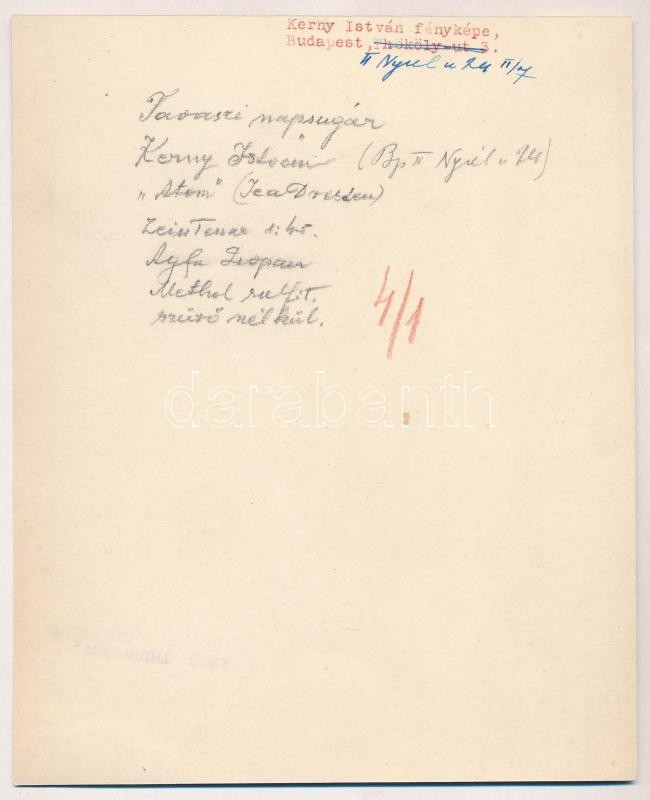 Kerny István fényképe,
Budapest, Thököly-ut 3.
II Nyúl u 24 II/7
Tavaszi napsugár
Kerny István (Bp II Nyúl u 24)
"Atom" (Ica Dresden)
Zeiss Tessar 1:4.5.
Agfa Isopan
Methol sulfit.
szürő nélkül.
4/1
darabanth